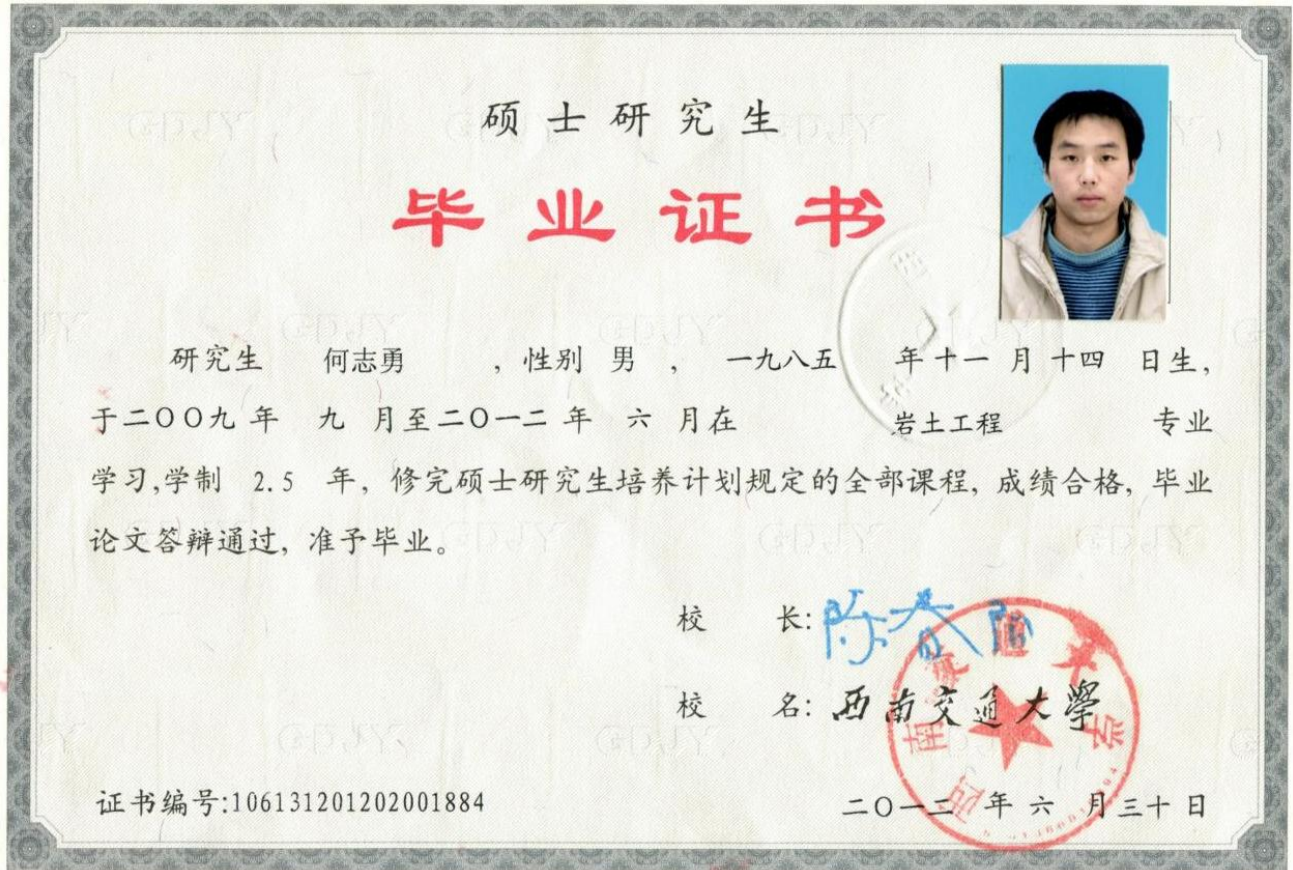 硕士研究生
毕业证书
研究生 何志勇 , 性别 男 , 一九八五 年十一 月十四 日生,
于二〇〇九 年 九 月至二〇一二 年 六 月在 岩土工程 专业
学习,学制 2.5 年, 修完硕士研究生培养计划规定的全部课程, 成绩合格, 毕业
论文答辩通过, 准予毕业。
校 长: 陈春阳
校 名: 西南交通大學
西南交通大学
证书编号:106131201202001884
二〇一二 年 六 月三十日